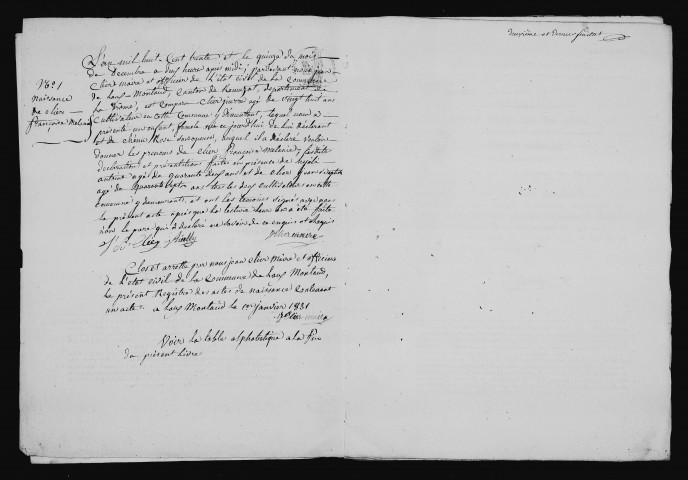 deuxième et dernier feuillet
N° 1
Naissance
de Clier
françoise Melanie
L'an mil huit Cent trente et le quinze du mois
de Decembre a deux heure apres midi; pardevant nous jean
Clier maire et officier de l'état civil de la Commune
de hors Montaud, Canton de departement de
la Drome, est Comparu Clier pierre agé de vingt huit ans
Cultivateur en cette Commune y demeurant, lequel nous a
presenté un enfant, femelle née ce jourd'hui de lui declarant
et de Rose Jacqueuse, auquel il a declaré vouloir
donner les prenoms de Clier françoise Melanie; lesdites
declaration et presentation faites en presence de
antoine agé de quarante deux ans et de Clier
agé de quarante sept ans tous les deux Cultivateurs en cette
commune y demeurants, et ont les temoins signés avec nous
le present acte après que la lecture leur en a été faite
non le pere qui a declaré ne savoir de ce enquis et
Clier maire
Clos et arretté par nous jean Clier Maire et officier
de l'etat civil de la Commune de hors Montaud,
le present Registre des actes de naissance Contenant
un acte a hors Montaud le 1er janvier 1831
Clier maire
Voir la table alphabetique a la fin
du present Livre